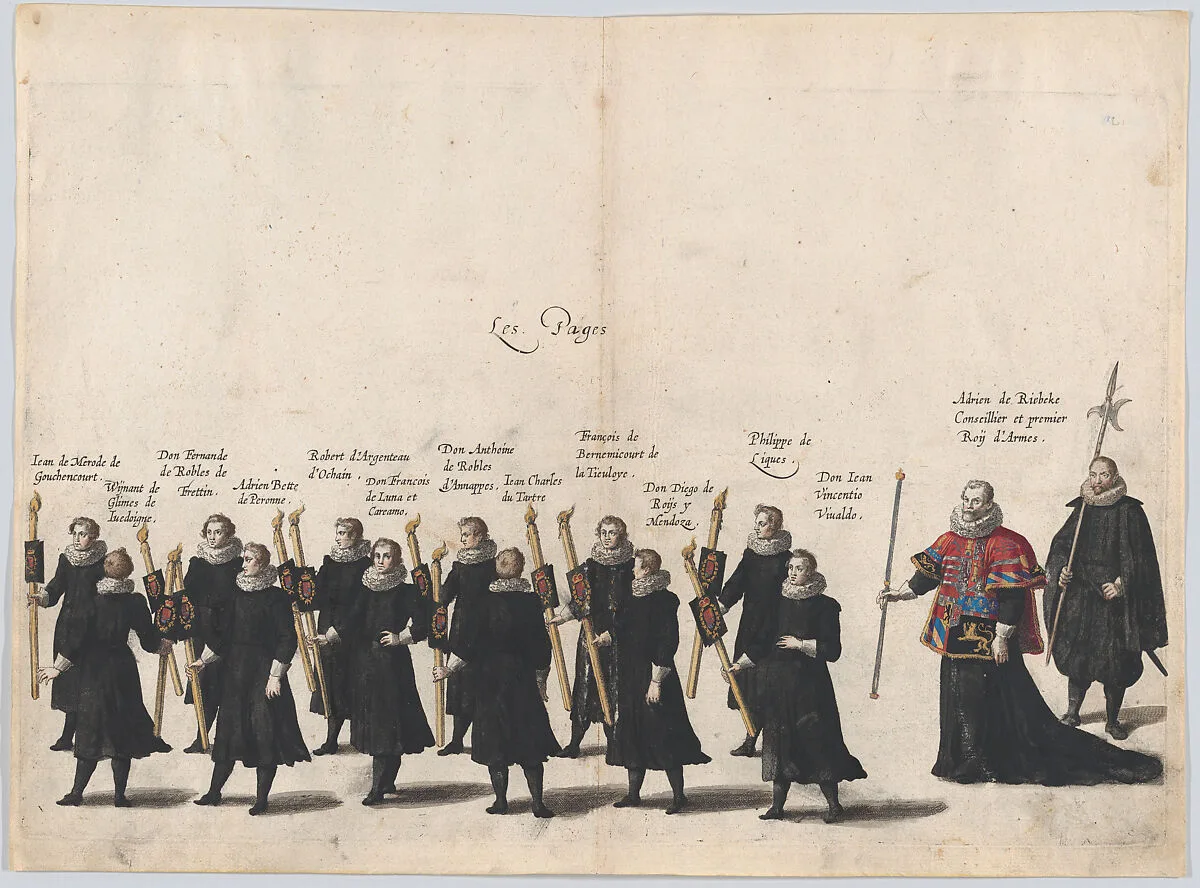 Les. Pages
Iean de Merode de
Gouchencourt.
Wijnant de
Glimes de
Iuedoigne.
Don Fernande
de Robles de
Frettin.
Adrien Bette
de Peronne.
Robert d'Argenteau
d'Ochain.
Don François
de Luna et
Careamo.
Don Anthoine
de Robles
d'Annappes.
Iean Charles
du Tartre
François de
Bernemicourt de
la Tieuloye.
Don Diego de
Roijs y
Mendoza.
Philippe de
Liques.
Don Iean
Vincentio
Viualdo.
Adrien de Riebeke
Conseillier et premier
Roij d'Armes.